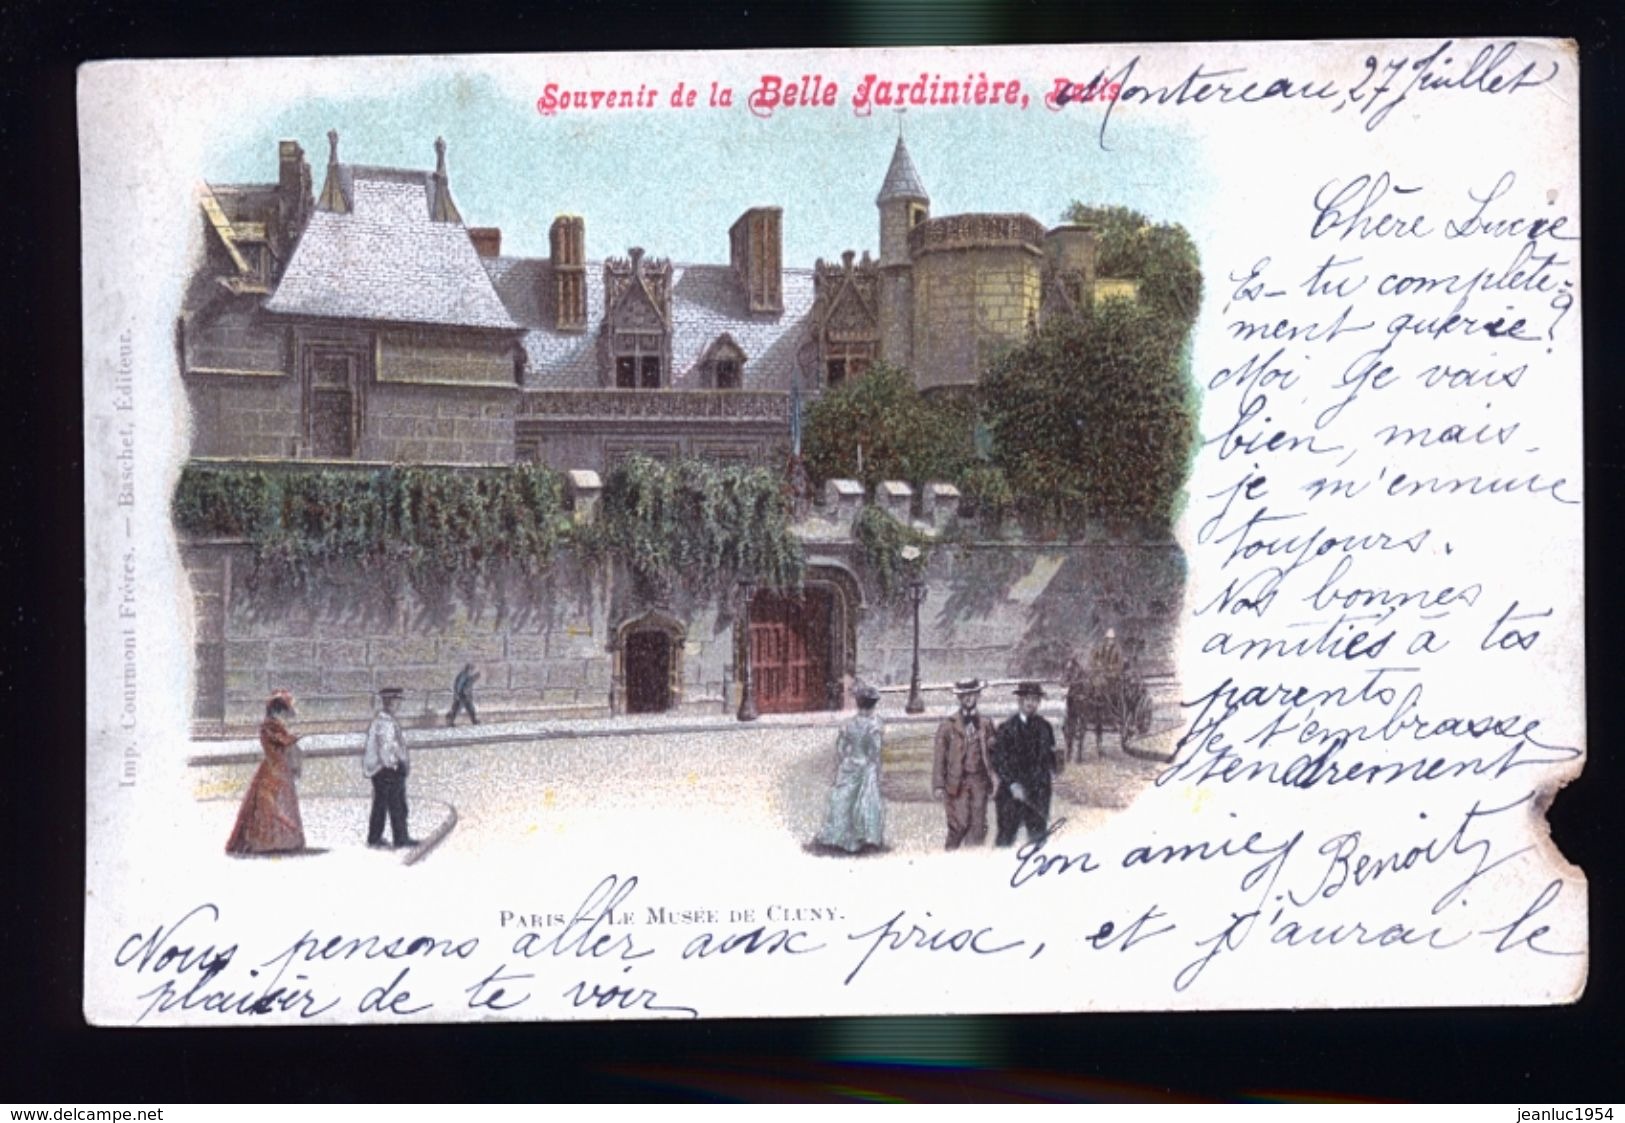 Souvenir de la Belle Jardinière, Paris
Montereau, 27 Juillet
Chère Lucie
Es-tu complète-
ment guérie?
Moi Je vais
bien, mais
je m'ennuie
toujours.
Nos bonnes
amitiés à tes
parents
Je t'embrasse
tendrement
Ton amie
Benoit
PARIS – LE MUSÉE DE CLUNY.
Nous pensons aller aux prix, et j'aurai le
plaisir de te voir
Imp. Courmont Frères. — Baschet, Éditeur.
delcampe.net
jeanluc1954